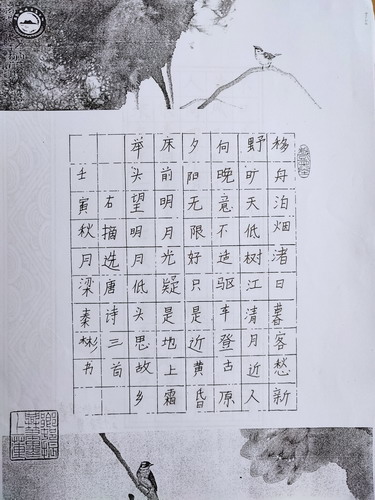 移舟泊烟渚日暮客愁新
野旷天低树江清月近人
向晚意不造驱车登古原
夕阳无限好只是近黄昏
床前明月光疑是地上霜
举头望明月低头思故乡
右摘选唐诗三首
壬寅秋月梁秦彬书